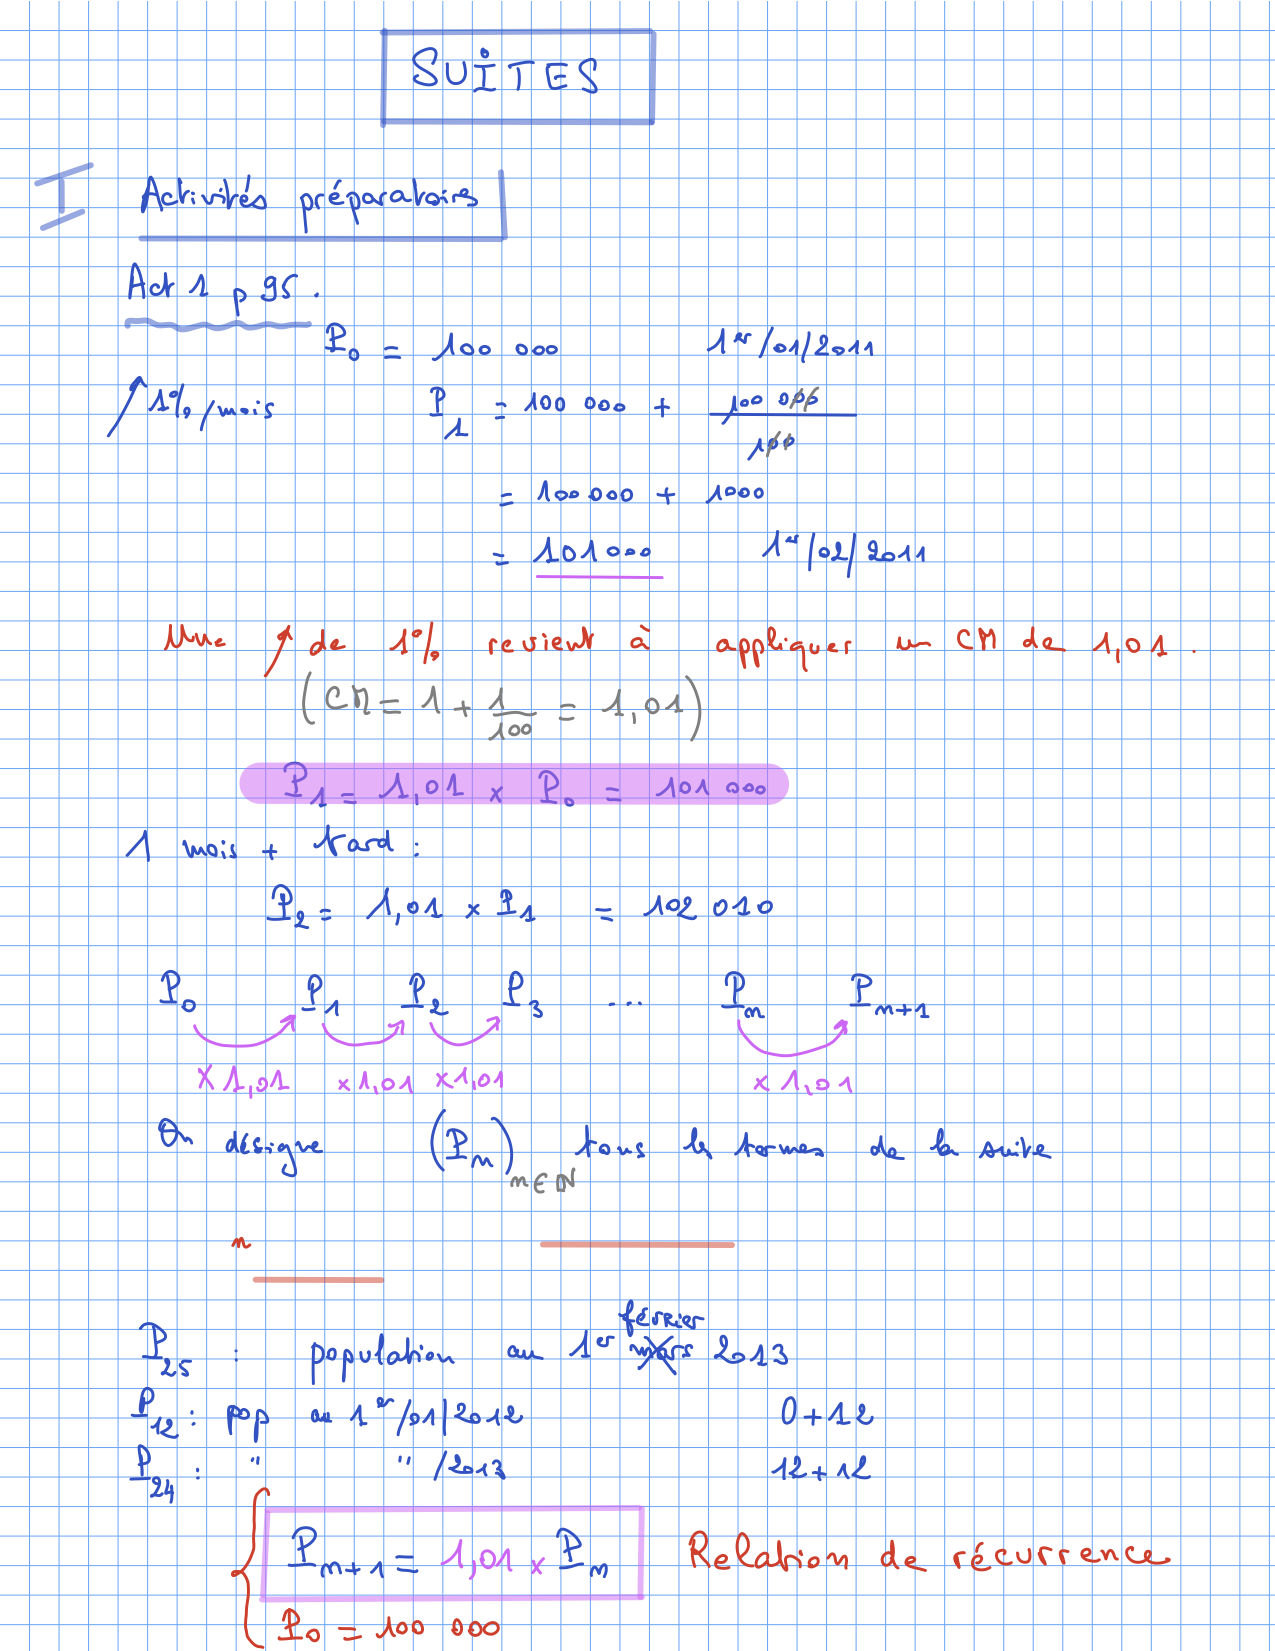 SUITES
I Activités préparatoires
Act 1 p 95.
P₀ = 100 000 1er/01/2011
↗ 1%/mois P₁ = 100 000 + 100 000/100
= 100 000 + 1000
= 101 000 1er/02/2011
Une ↗ de 1% revient à appliquer un CM de 1,01.
(CM = 1 + 1/100 = 1,01)
P₁ = 1,01 × P₀ = 101 000
1 mois + tard :
P₂ = 1,01 × P₁ = 102 010
P₀ P₁ P₂ P₃ ... Pn Pn+1
×1,01 ×1,01 ×1,01 ×1,01
On désigne (Pn)n∈ℕ tous les termes de la suite
n
février
P₂₅ : population au 1er mars 2013
P₁₂ : pop au 1er/01/2012 0+12
P₂₄ : " " /2013 12+12
Pn+1 = 1,01 × Pn Relation de récurrence
P₀ = 100 000